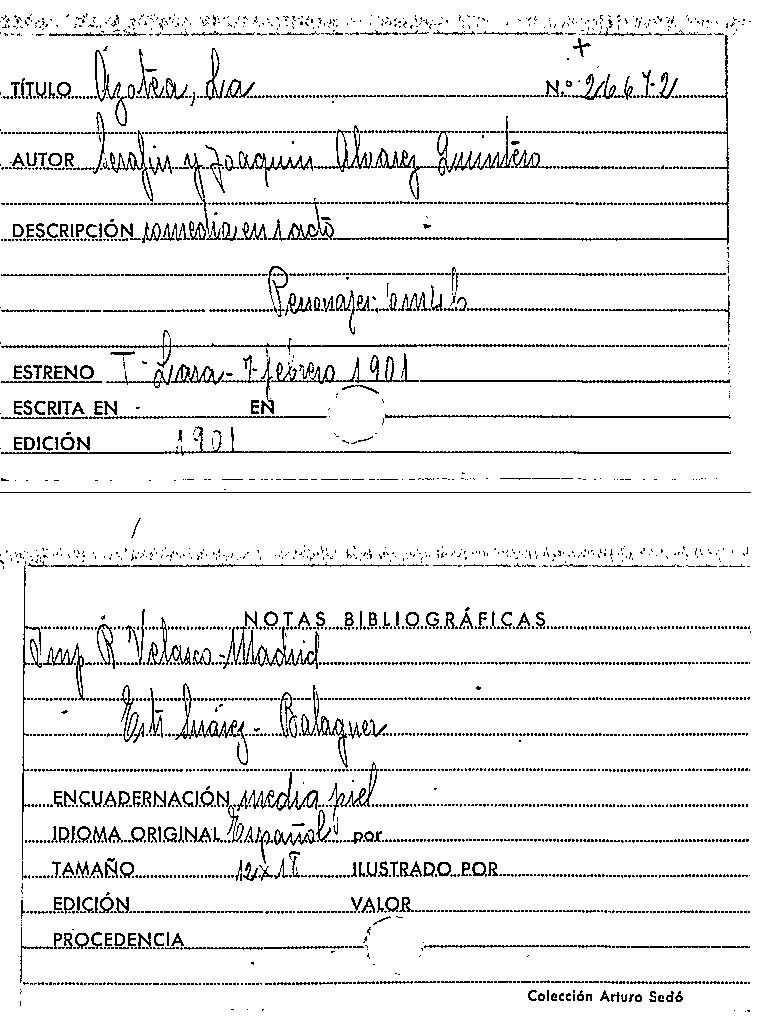 +
TÍTULO Azotea, La N.º 2667-2
AUTOR Serafin y Joaquin Alvarez Quintero
DESCRIPCIÓN comedia en 1 acto
Personajes: 6 m 4 h
ESTRENO T. Lara - 7 febrero 1901
ESCRITA EN EN
EDICIÓN 1901
NOTAS BIBLIOGRÁFICAS
Imp R Velasco - Madrid
Estr Suárez - Balaguer
ENCUADERNACIÓN media piel
IDIOMA ORIGINAL Español por
TAMAÑO ILUSTRADO POR
EDICIÓN VALOR
PROCEDENCIA
Colección Arturo Sedó